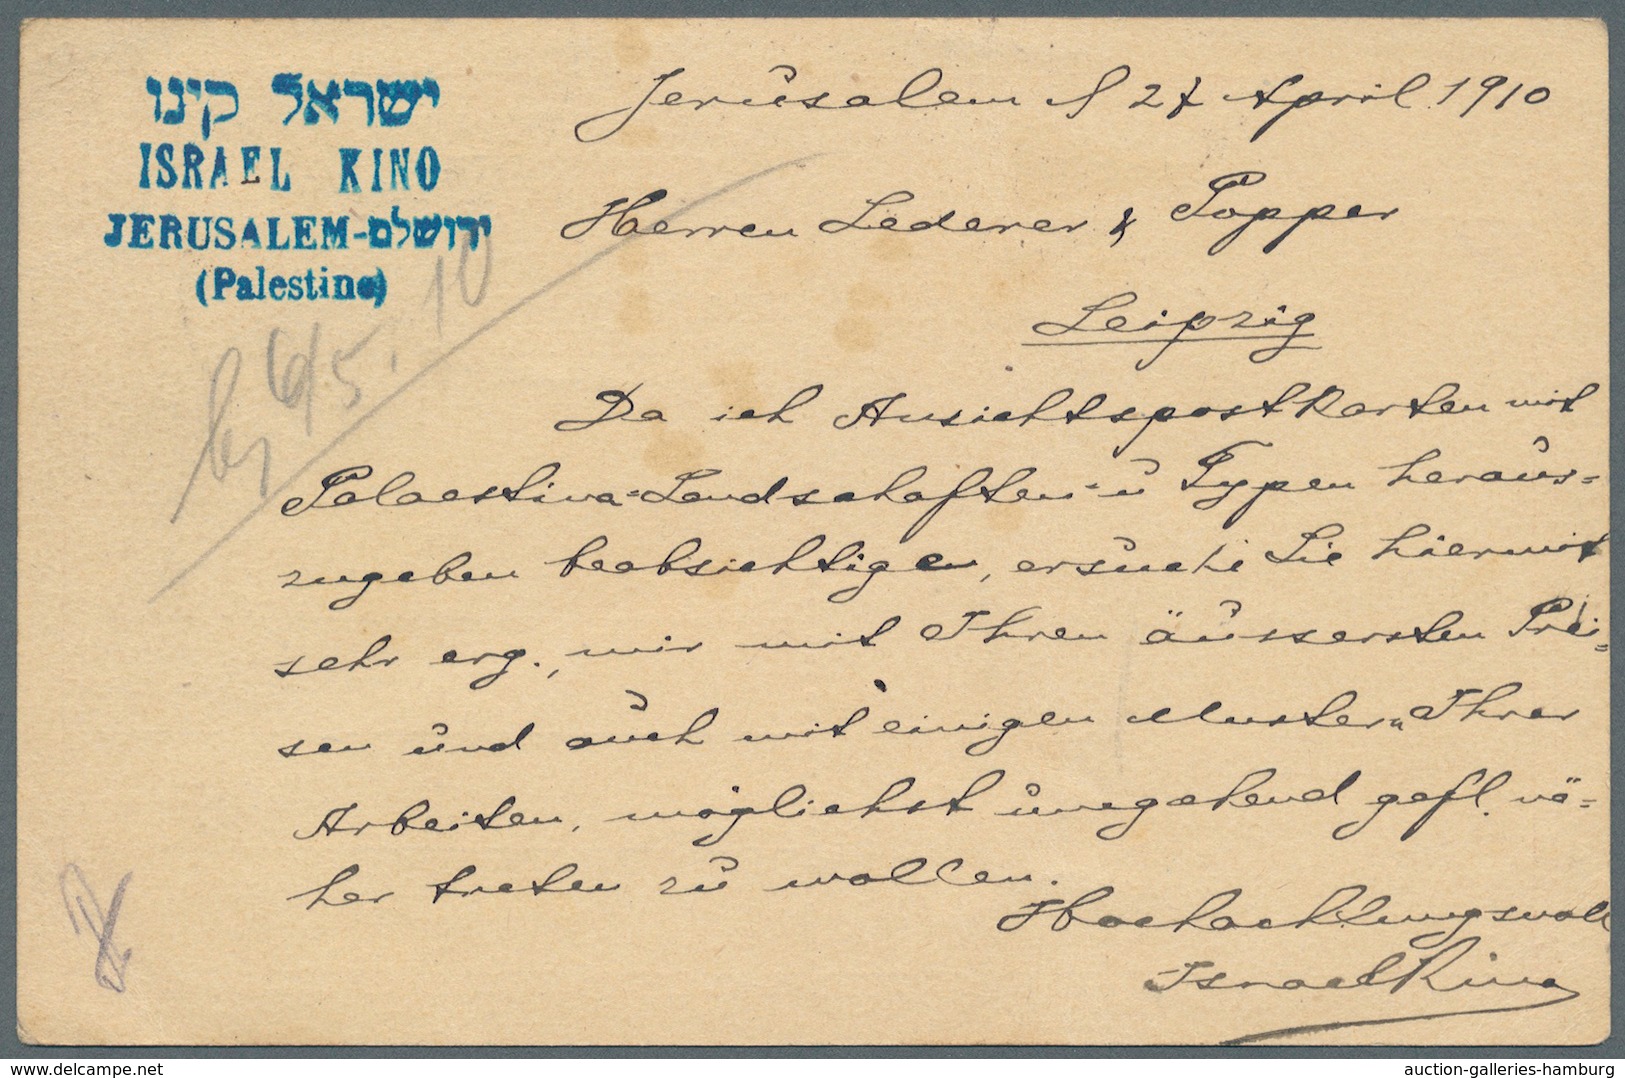 ישראל קינו
ISRAEL KINO
JERUSALEM-ירושלם
(Palestine)
Jerusalem d 27 April 1910
Herren Lederer & Popper
Leipzig
6/5.10
Da ich Ansichtspostkarten mit
Palaestina=Landschaften u Typen heraus=
zugeben beabsichtigen, ersuche Sie hiermit
sehr erg., mir mit Ihren äussersten Prei=
sen und auch mit einigen Mustern Ihrer
Arbeiten, möglichst umgehend gefl. nä=
her treten zu wollen.
Hochachtungsvoll
Israel Kino
delcampe.net
auction-galleries-hamburg